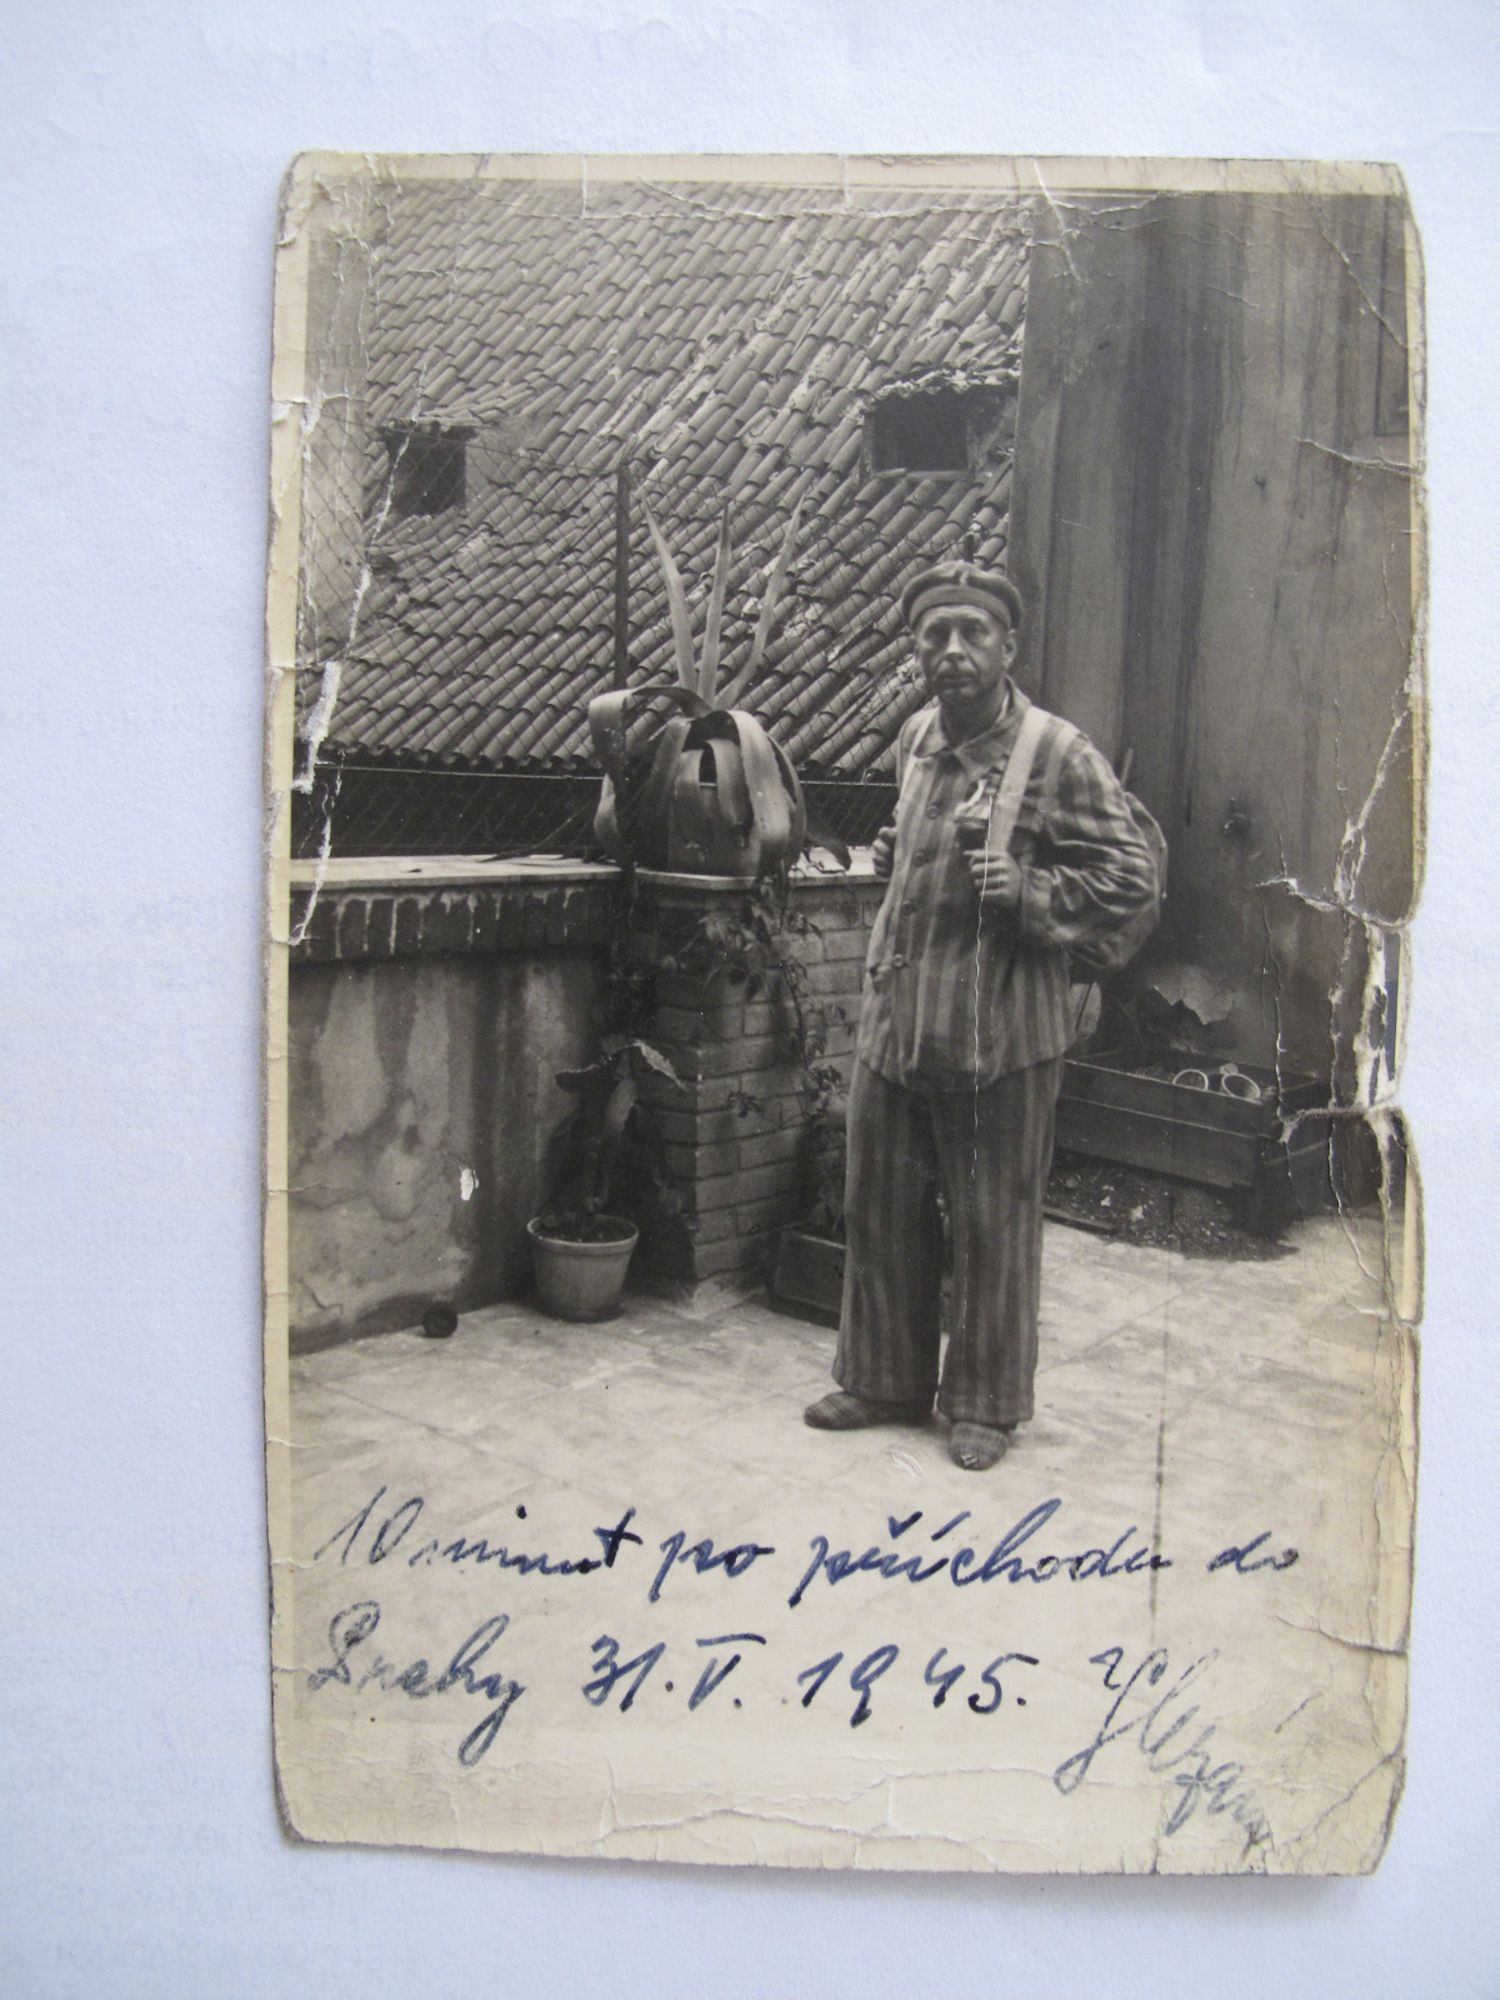 10 minut po příchodu do
Prahy 31. V. 1945.